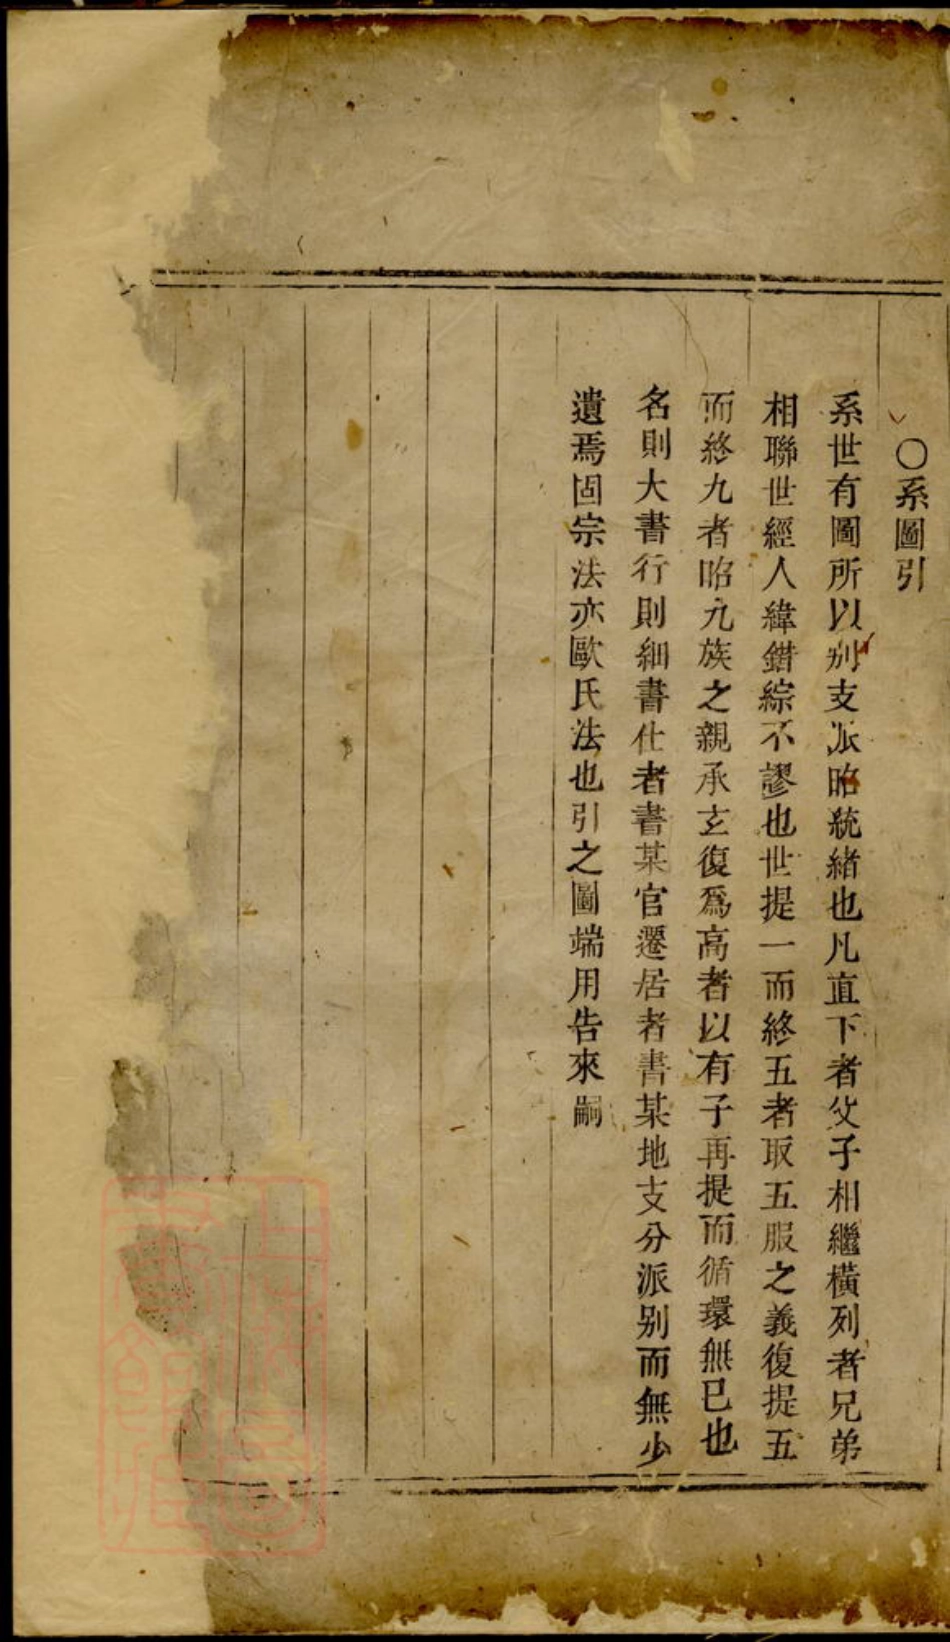 〇系圖引
系世有圖所以别支派昭統緒也凡直下者父子相繼橫列者兄弟
相聯世經人緯錯綜不謬也世提一而終五者取五服之義復提五
而終九者昭九族之親承玄復爲高者以有子再提而循環無已也
名則大書行則細書仕者書某官遷居者書某地支分派别而無少
遺焉固宗法亦歐氏法也引之圖端用告來嗣